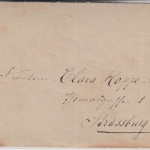 Fräulein Clara Koppe
1
Strassburg